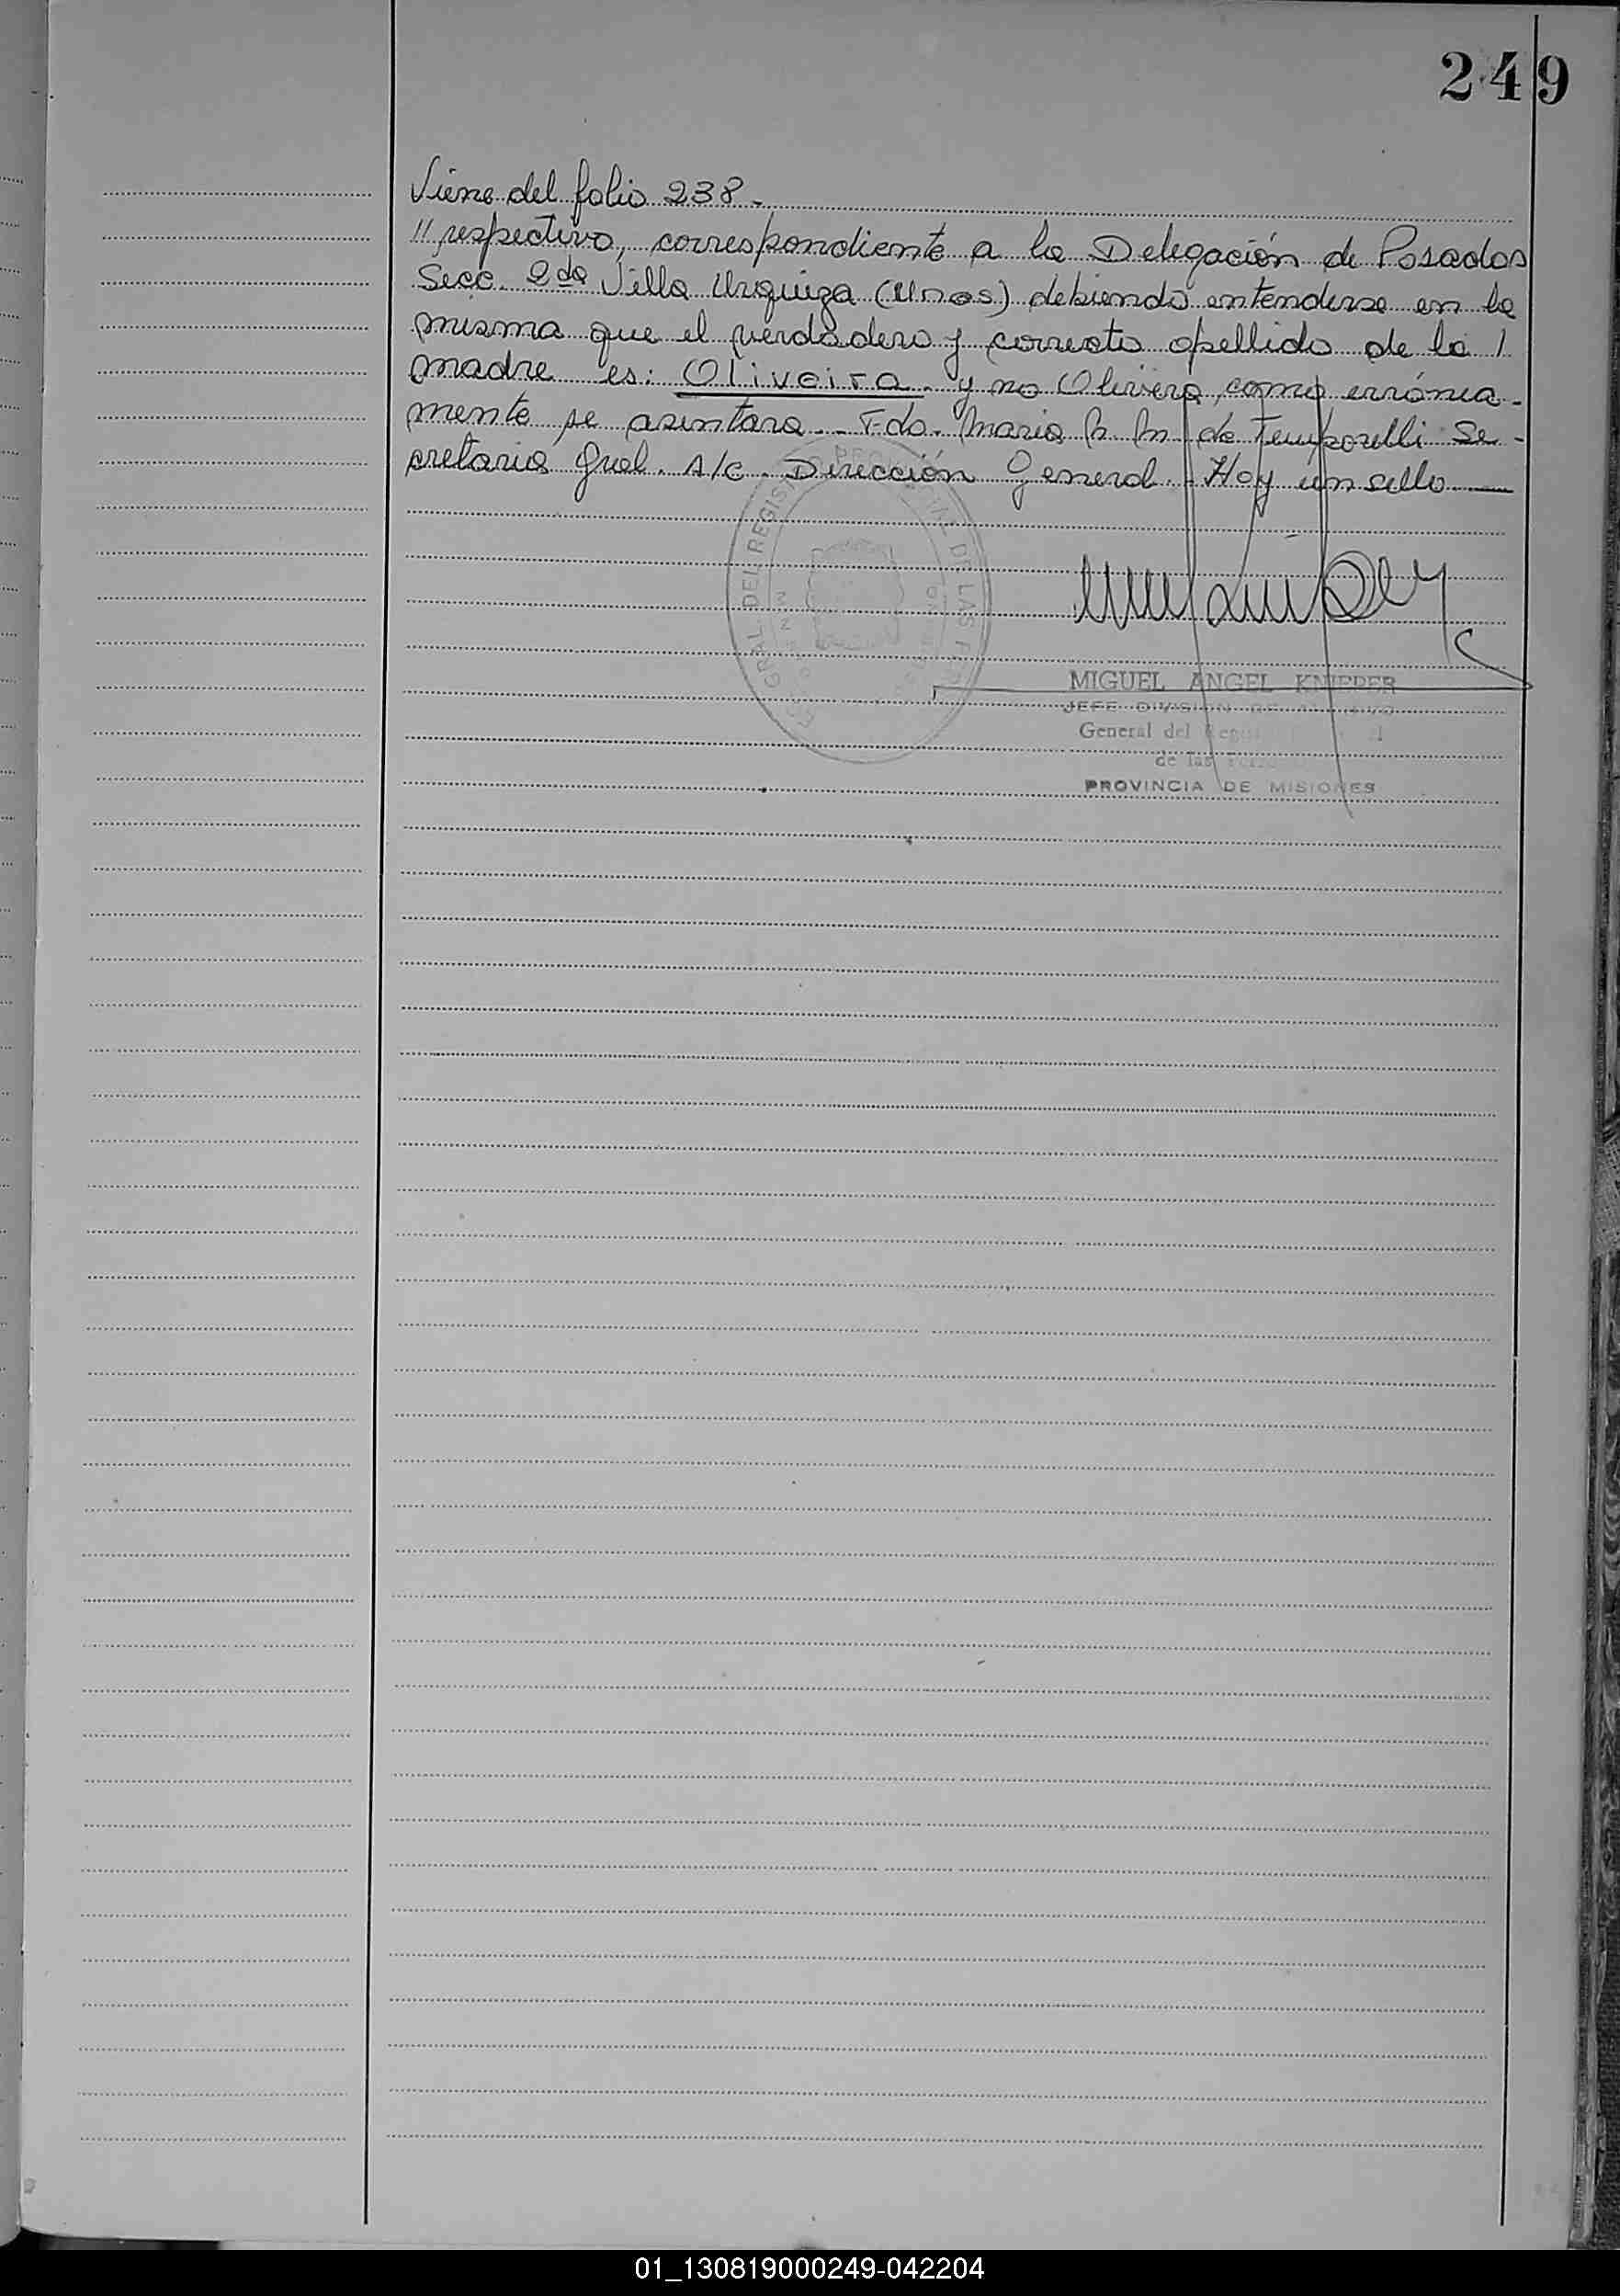 249
Viene del folio 238.-
// respectivo, correspondiente a la Delegación de Posadas
Secc. 2da Villa Urquiza (Mnes) debiendo entenderse en la
misma que el verdadero y correcto apellido de la /
madre es: Oliveira. y no Olivera, como errónea-
mente se asentara.- Fdo. Maria M. de Temporelli Se-
cretaria Gral. A/C. Dirección General.- Hay un sello
GRAL. DEL REGIS DE LAS
MIGUEL ANGEL KNIEPER
JEFE DIVISION DE
General del
de las
PROVINCIA DE MISIONES
01_130819000249-042204